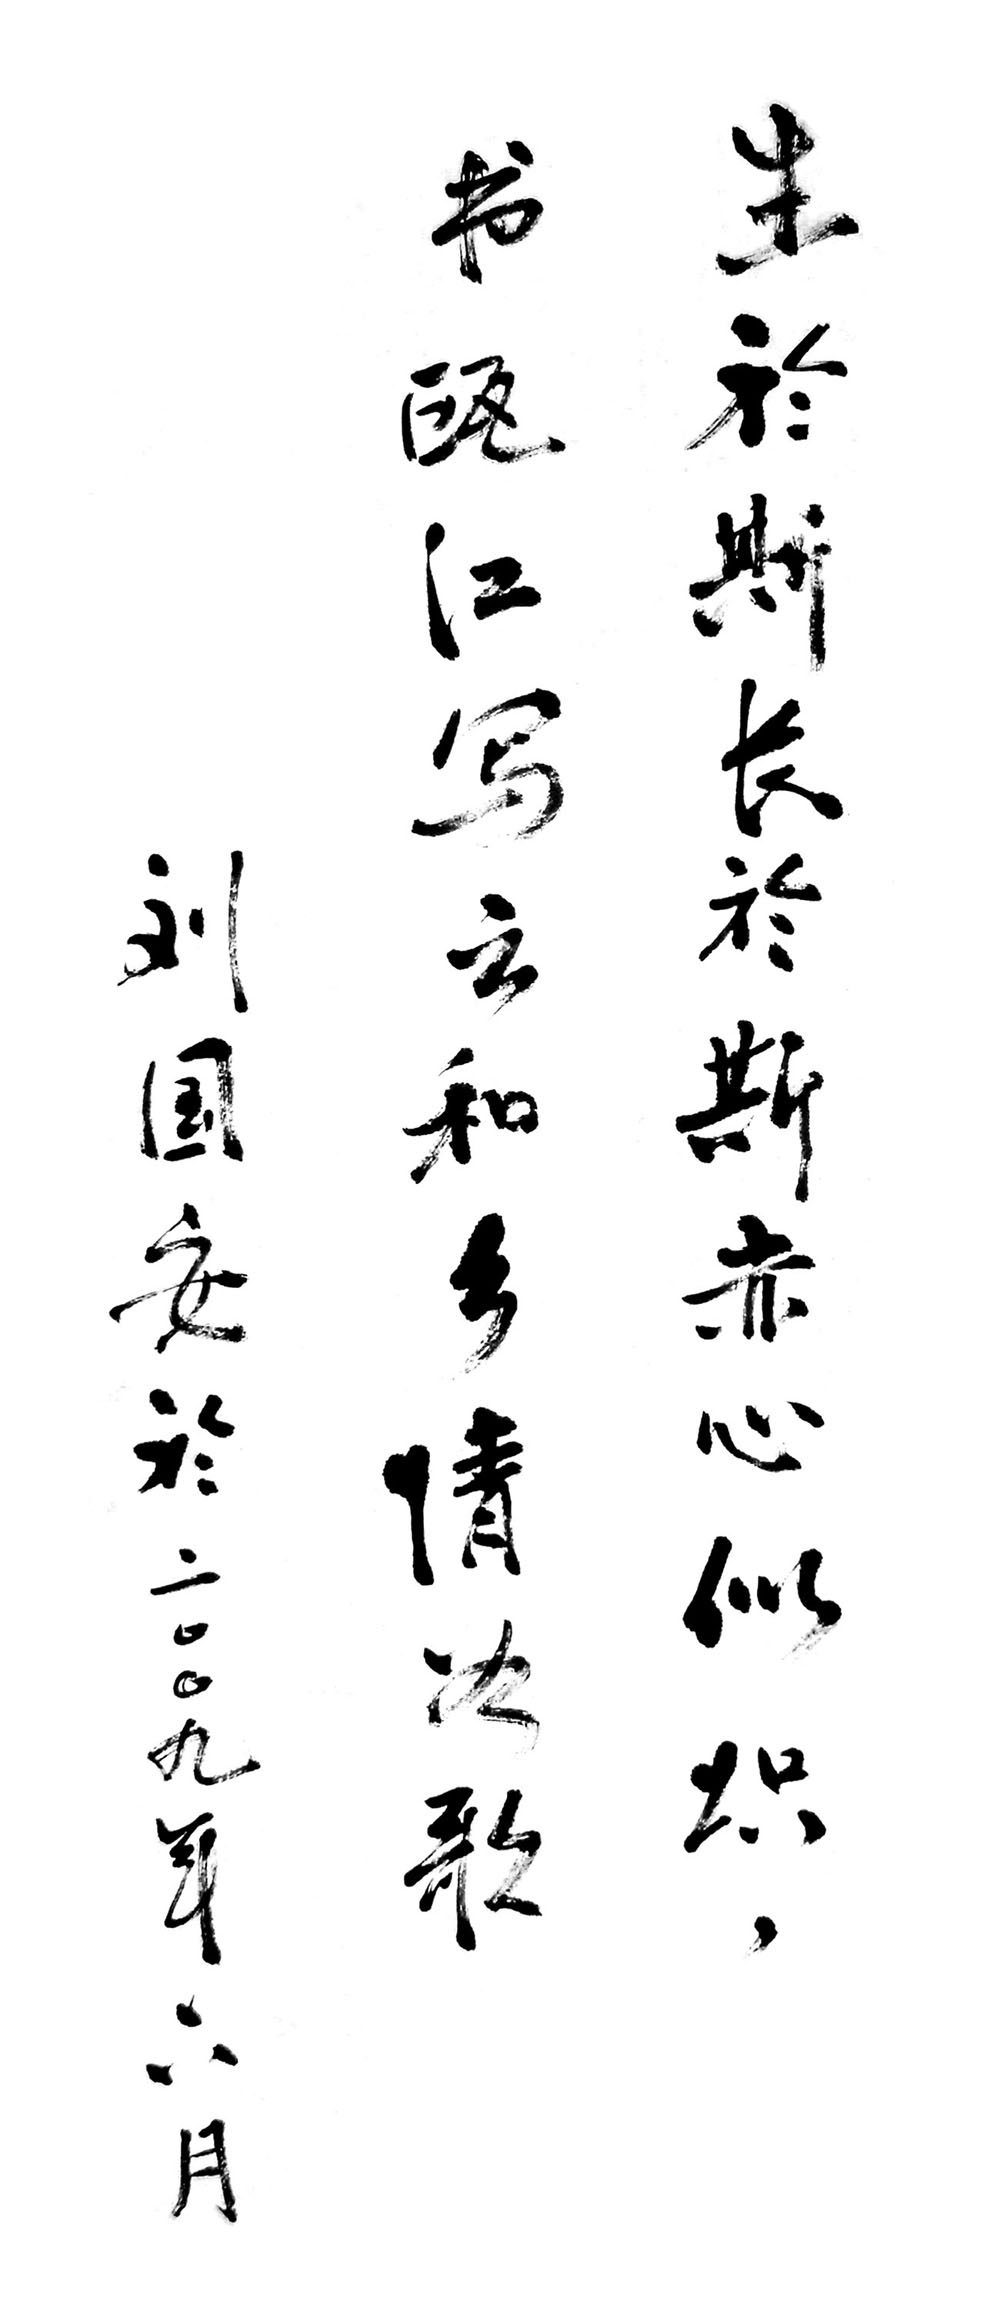 生於斯长於斯赤心似炽，
书瓯江写云和乡情歌
刘国安於二〇〇九年六月